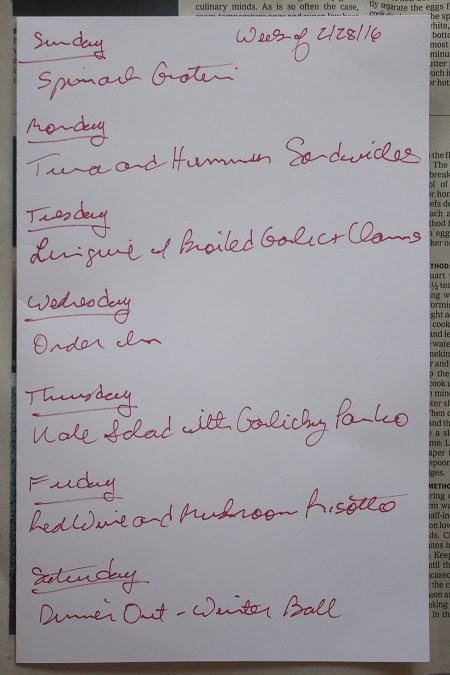 culinary minds. As is so often the case,
Week of 2/28/16
Sunday
Spinach Gratin
Monday
Tuna and Hummus Sandwiches
Tuesday
Linguine w/ Broiled Garlic & Clams
Wednesday
Order In
Thursday
Kale Salad with Garlicky Panko
Friday
Red Wine and Mushroom Risotto
Saturday
Dinner Out - Winter Ball